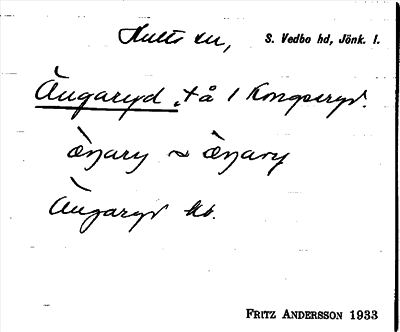 Hults sn, S. Vedbo hd, Jönk. l.
Ängaryd, tå / Kongseryd.
æŋary ~ æŋary
Ängaryd kb.
FRITZ ANDERSSON 1933